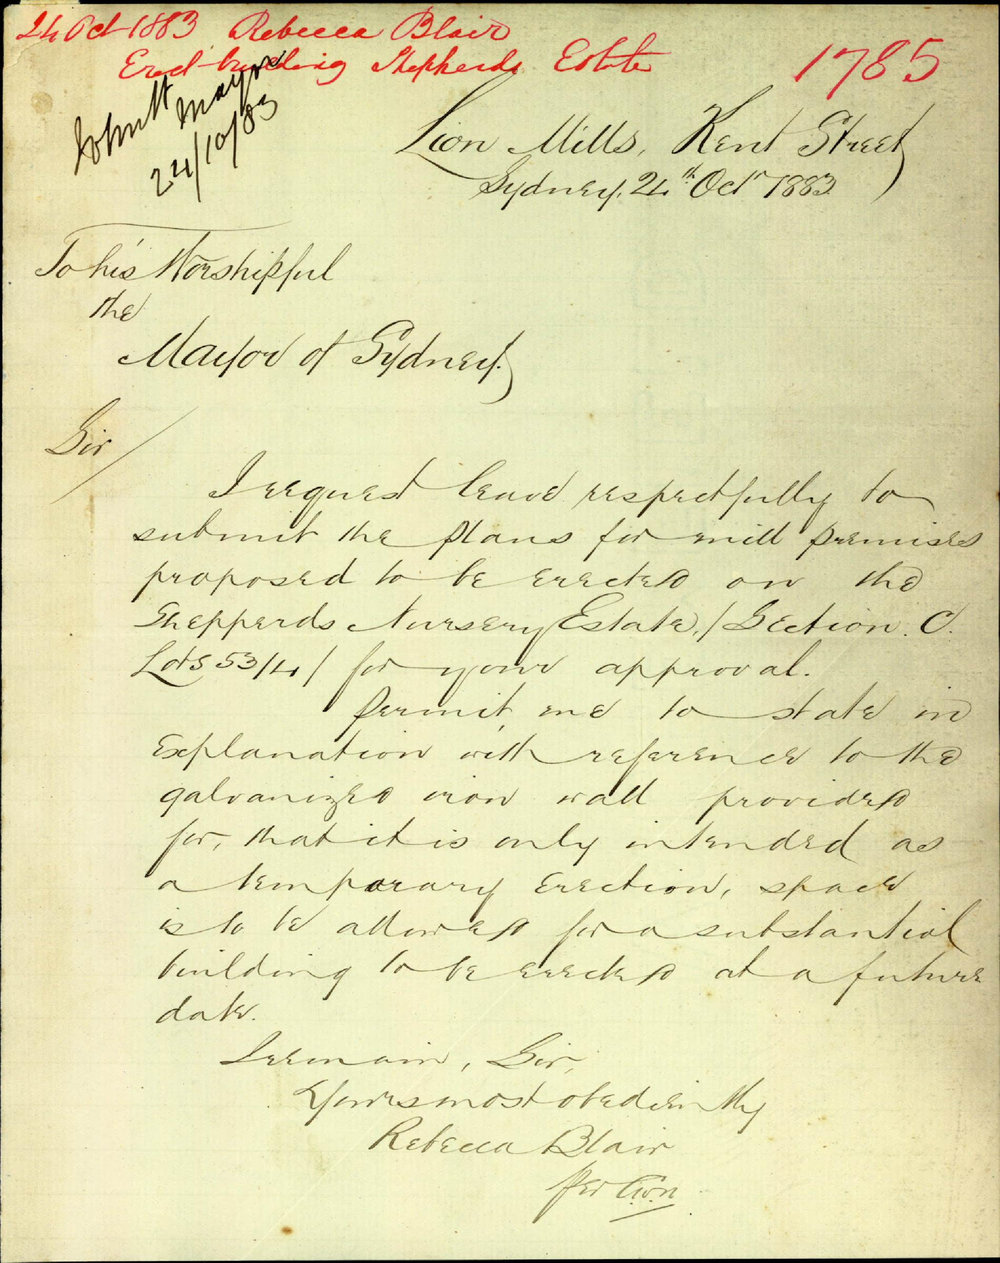 24 Oct 1883 Rebecca Blair
Erect building Shepherds Estate
1785
John H
Mayor
24/10/83
Lion Mills, Kent Street
Sydney, 24th Oct 1883
To his Worshipful
the
Mayor of Sydney.
Sir/
I request leave respectfully to
submit the plans for mill premises
proposed to be erected on the
Shepperds Nursery Estate, /Section C.
Lots 53/4/ for your approval.
Permit me to state in
explanation with reference to the
galvanized iron wall provided
for, that it is only intended as
a temporary erection, space
is to be allowed for a substantial
building to be erected at a future
date.
I remain, Sir,
Yours most obediently
Rebecca Blair
per